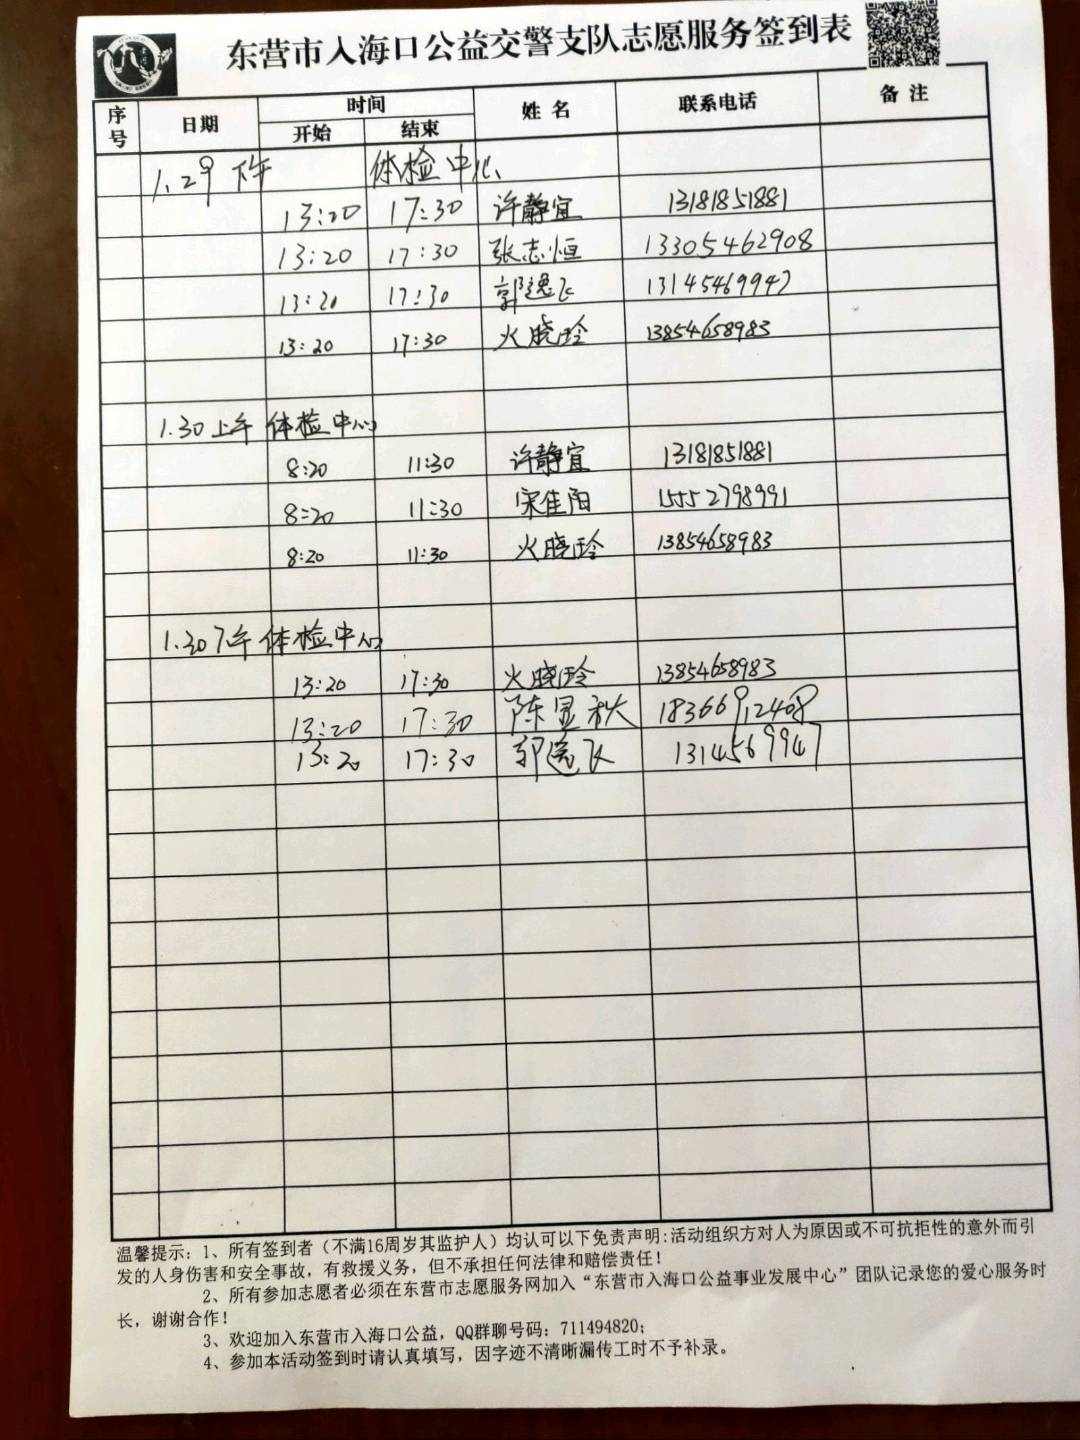 东营市入海口公益交警支队志愿服务签到表
序号 日期 时间 姓名 联系电话 备注
开始 结束
1.29下午 体检中心
13:20 17:30 许静宜 13181851881
13:20 17:30 张志恒 13305462908
13:20 17:30 郭逸飞 13145469947
13:20 17:30 火晓玲 13854658983
1.30上午 体检中心
8:20 11:30 许静宜 13181851881
8:20 11:30 宋佳阳 15552798991
8:20 11:30 火晓玲 13854658983
1.30下午 体检中心
13:20 17:30 火晓玲 13854658983
13:20 17:30 陈显秋 18366912408
13:20 17:30 郭逸飞 1314569947
温馨提示：1、所有签到者（不满16周岁其监护人）均认可以下免责声明:活动组织方对人为原因或不可抗拒性的意外而引
发的人身伤害和安全事故，有救援义务，但不承担任何法律和赔偿责任！
2、所有参加志愿者必须在东营市志愿服务网加入“东营市入海口公益事业发展中心”团队记录您的爱心服务时
长，谢谢合作！
3、欢迎加入东营市入海口公益，QQ群聊号码：711494820；
4、参加本活动签到时请认真填写，因字迹不清晰漏传工时不予补录。